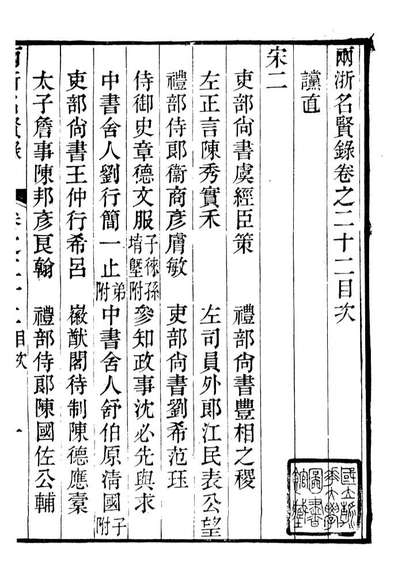 兩浙名賢錄卷之二十二目次
讜直
宋二
吏部尚書虞經臣策 禮部尚書豐相之稷
左正言陳秀實禾 左司員外郎江民表公望
禮部侍郎衞商彥膚敏 吏部尚書劉希范珏
侍御史章德文服 子徠孫附 參知政事沈必先與求
中書舍人劉行簡一止 弟附 中書舍人舒伯原清國 子附
吏部尚書王仲行希呂 徽猷閣待制陳德應橐
太子詹事陳邦彥良翰 禮部侍郎陳國佐公輔
兩浙名賢錄 卷之二十二目次 一